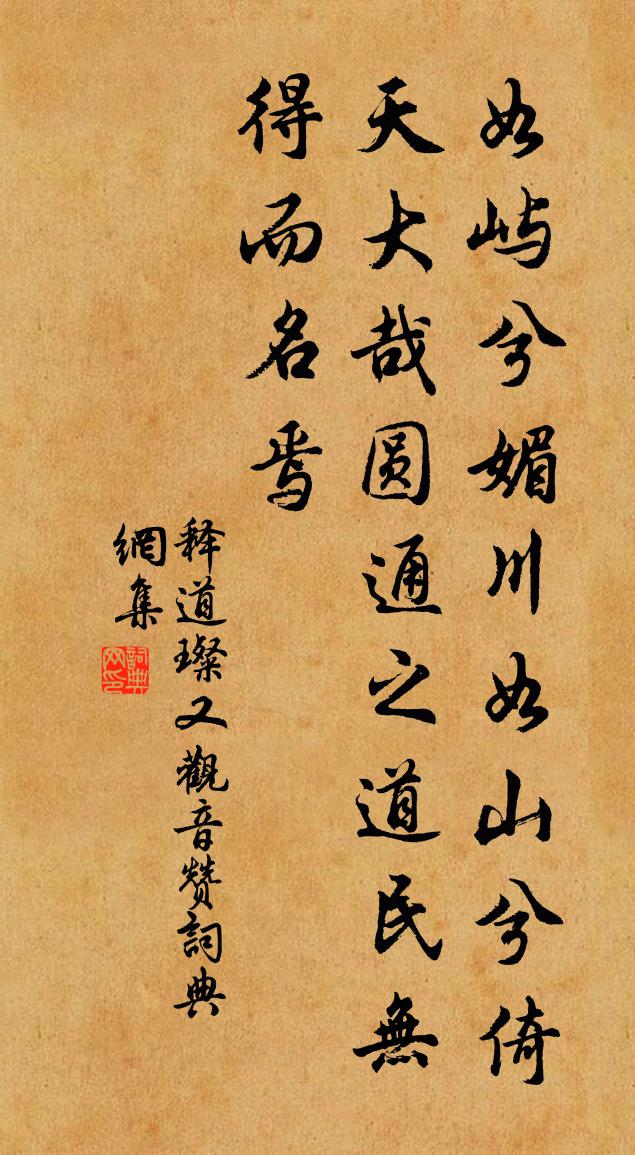 如屿兮媚川如山兮倚
天大哉圆通之道民無
得而名焉
释道璨又觀音赞詞典
網集
詞典
网印